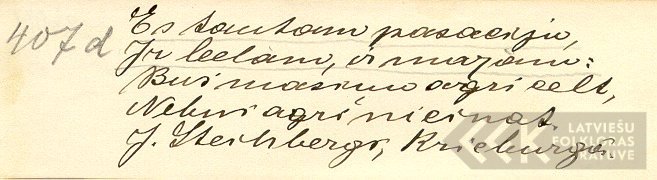 407d
Es tautam pasacīju,
Ir lielam, ir mazam:
Būs māsiņu agri celt,
Nebūs agri nicināt.
J. Steihbergs, Krieburgā.
LATVIEŠU
FOLKLORAS
KRĀTUVE